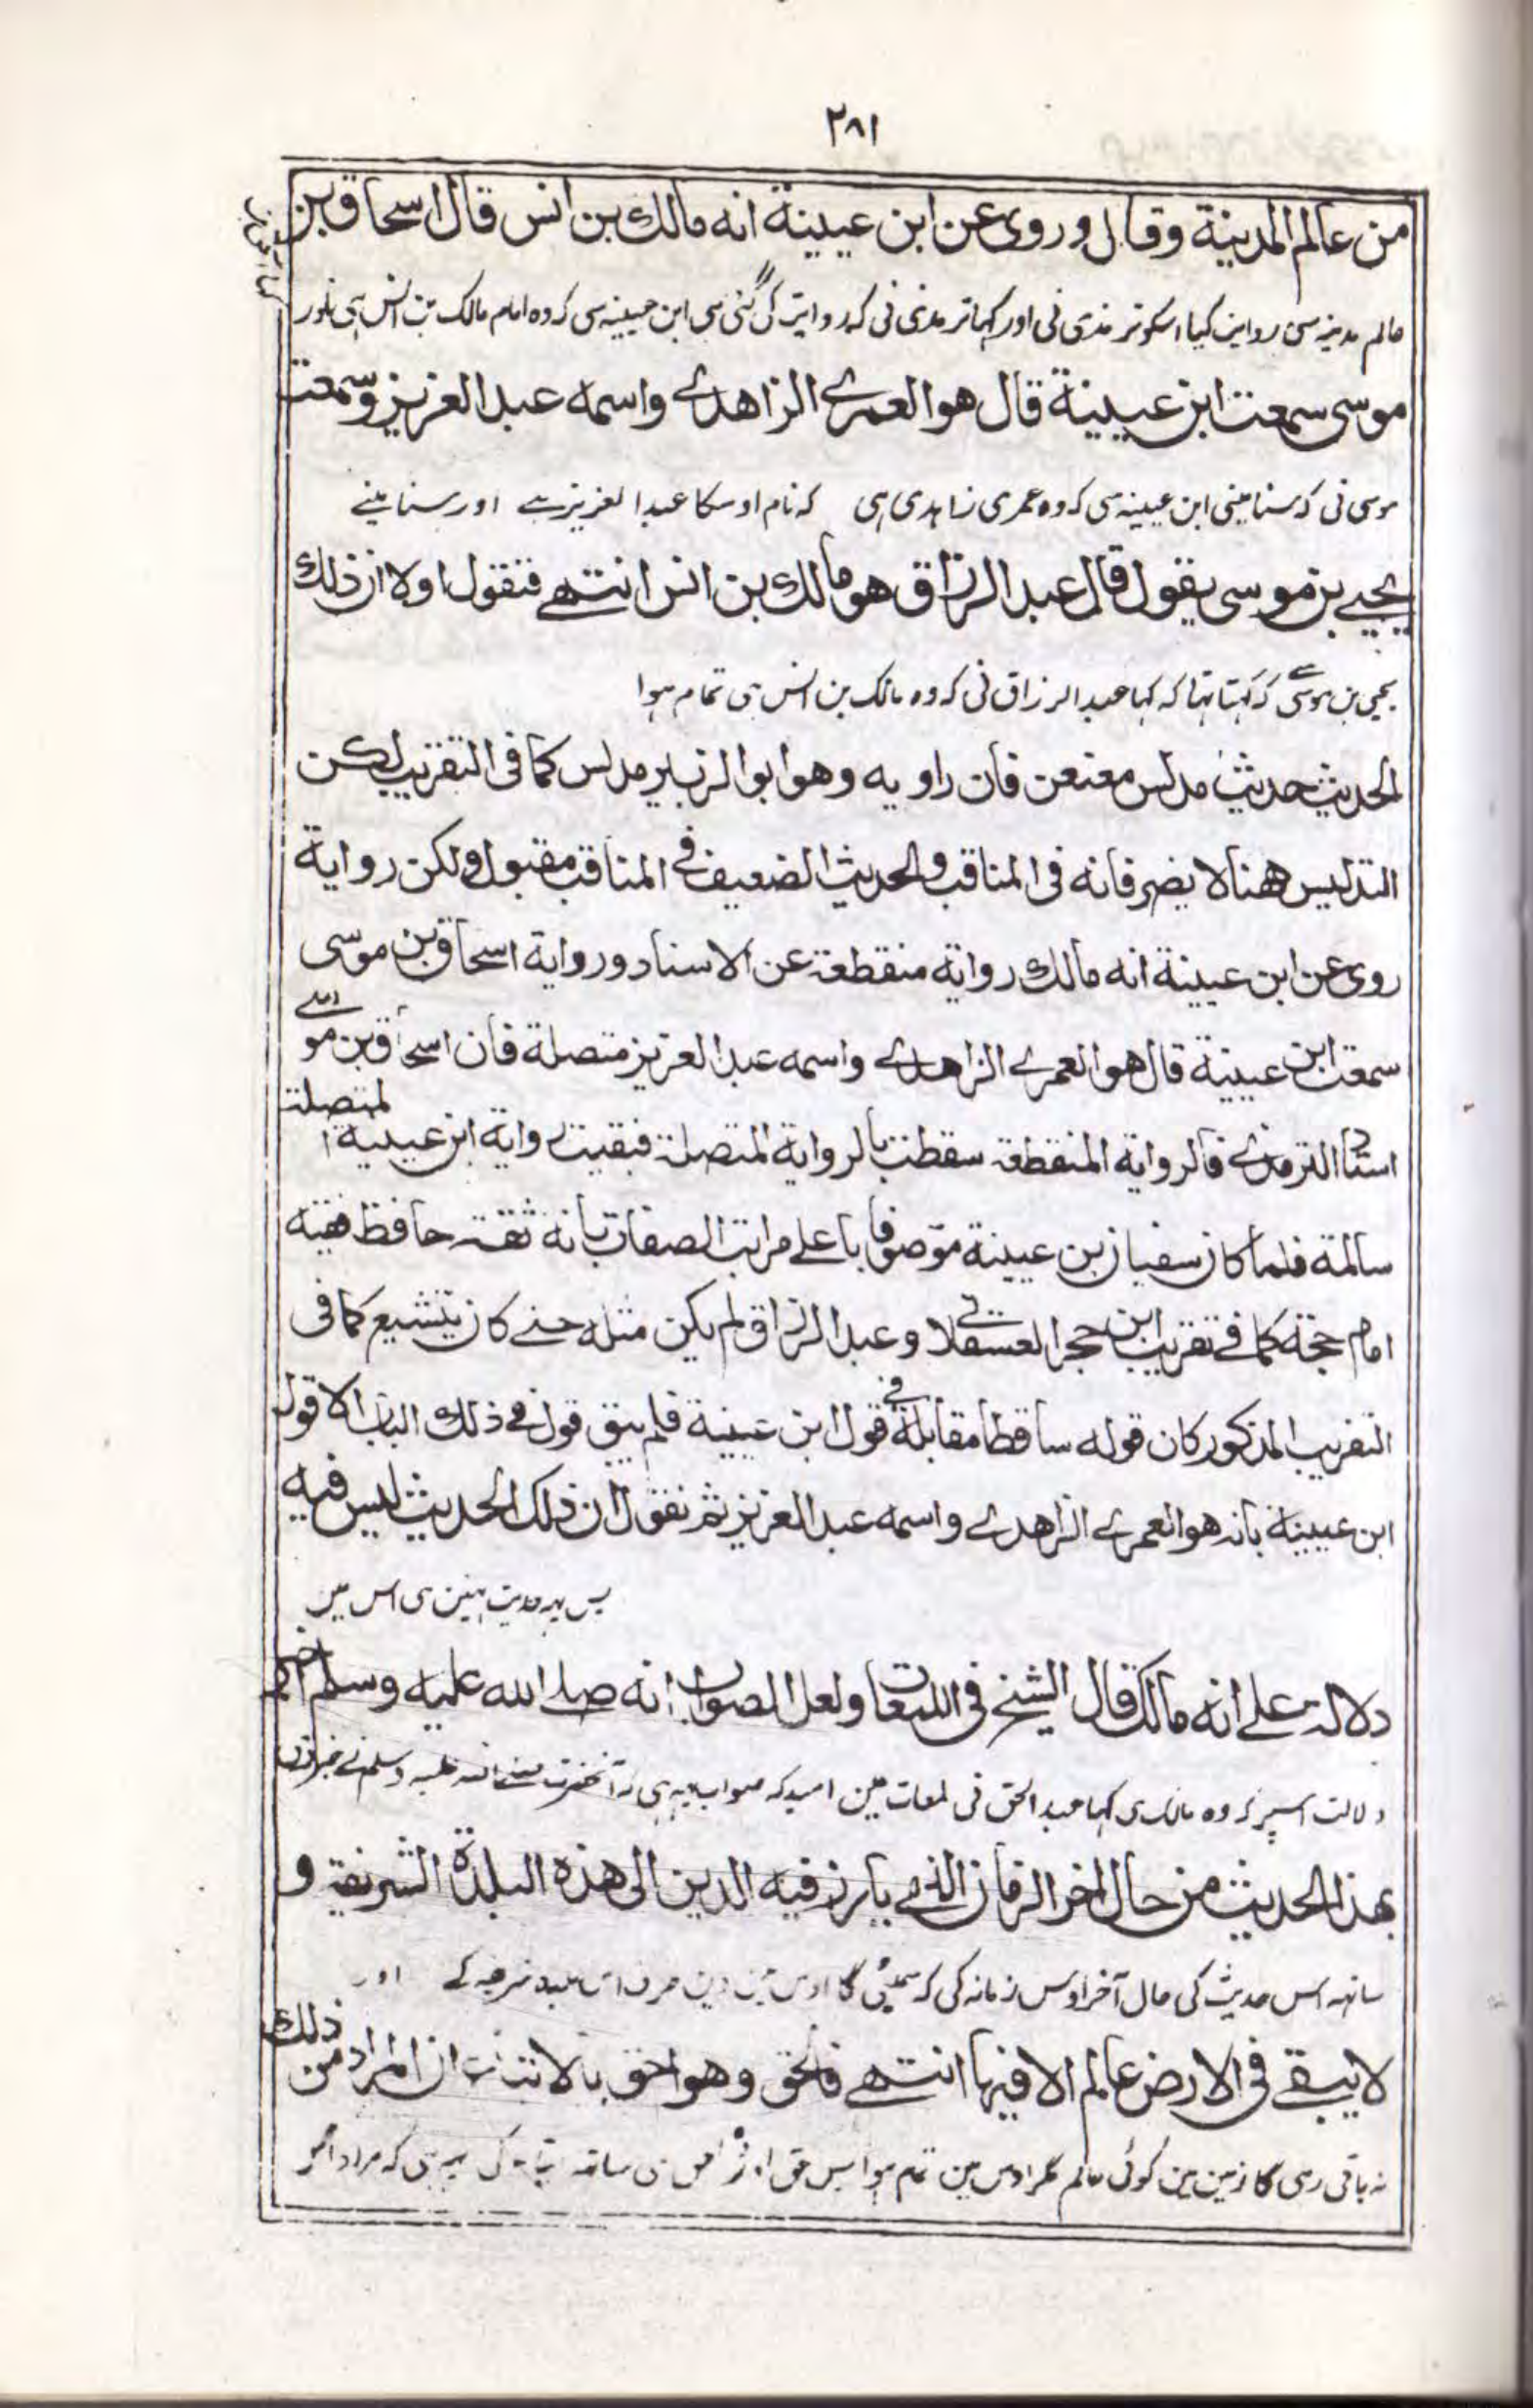 ٢٨١
من عالم المدينة وقال وروى عن ابن عيينة انه مالك بن انس قال اسحاق بن
عالم مدينه سى روايت كيا اسكو ترمذى نى اور كها ترمذى نى كه روايت كى گئى هى ابن عيينه سى كه وه امام مالك بن انس هى اور
موسى سمعت ابن عيينة قال هو العمرے الزاهدے واسمه عبد العزيز وسمعت
موسى نى كه سنا مينى ابن عيينه سى كه وه عمرى زاهدى هى كه نام اوسكا عبد العزيز ہے اور سنا مينے
يحيے بن موسى يقول قال عبد الرزاق هو مالك بن انس انتهے فنقول اولا ان ذلك
يحيى بن موسى سے كه كهتا تها كه كها عبد الرزاق نى كه وه مالك بن انس هى تمام هوا
الحديث حديث مدلس معنعن فان راويه وهو ابو الزبير مدلس كما فى التقريب لكن
التدليس ههنا لا يضر فانه فى المناقب والحديث الضعيف فے المناقب مقبول ولكن رواية
روى عن ابن عيينة انه مالك رواية منقطعة عن الاسناد ورواية اسحاق بن موسى
سمعت ابن عيينة قال هو العمرے الزاهدے واسمه عبد العزيز متصلة فان اسحاق بن مو
استاد الترمذے فالرواية المنقطعة سقطت بالرواية المتصلة فبقيت رواية ابن عيينة المتصلة
سالمة فلما كان سفيان بن عيينة موصوفا باعلے مراتب الصفات بانه ثقة حافظ فقيه
امام حجة كما فے تقريب ابن حجر العسقلانے وعبد الرزاق لم يكن مثله حتے كان يتشيع كما فى
التقريب المذكور كان قوله ساقطا فى مقابلة قول ابن عيينة فلم يبق قول فے ذلك الباب الا قول
ابن عيينة بانه هو العمرے الزاهدے واسمه عبد العزيز ثم نقول ان ذلك الحديث ليس فيه
پس يه حديث نهين هى اس مين
دلالة علے انه مالك قال الشيخ فى اللمعات ولعل الصواب انه صلے الله عليه وسلم اخبر
دلالت اسپر كه وه مالك هى كها عبد الحق نى لمعات مين اميد كه صواب يه هى كه آنحضرت صلے الله عليه وسلم نے خبر دى
بهذا الحديث من حال اخر الزمان الذے يأرز فيه الدين الى هذه البلدة الشريفة و
ساتهه اس حديث كى حال آخر اوس زمانه كى كه سمٹى گا اوس مين دين طرف اس بلده شريفه كے اور
لا يبقے فى الارض عالم الا فيها انتهے فالحق وهو احق بالاتباع ان المراد من ذلك
نه باقى رهى گا زمين مين كوئى عالم مگر اوس مين تمام هوا پس حق اور احق هى ساتهه اتباع كى يه هى كه مراد اس